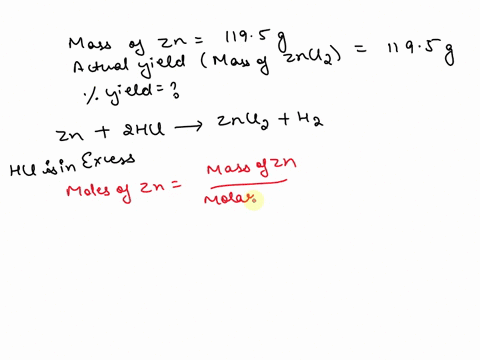 Mass of Zn = 119.5 g
Actual yield (Mass of ZnCl2) = 119.5 g
% yield = ?
Zn + 2HCl → ZnCl2 + H2
HCl is in Excess
Moles of Zn = Mass of Zn
Molar